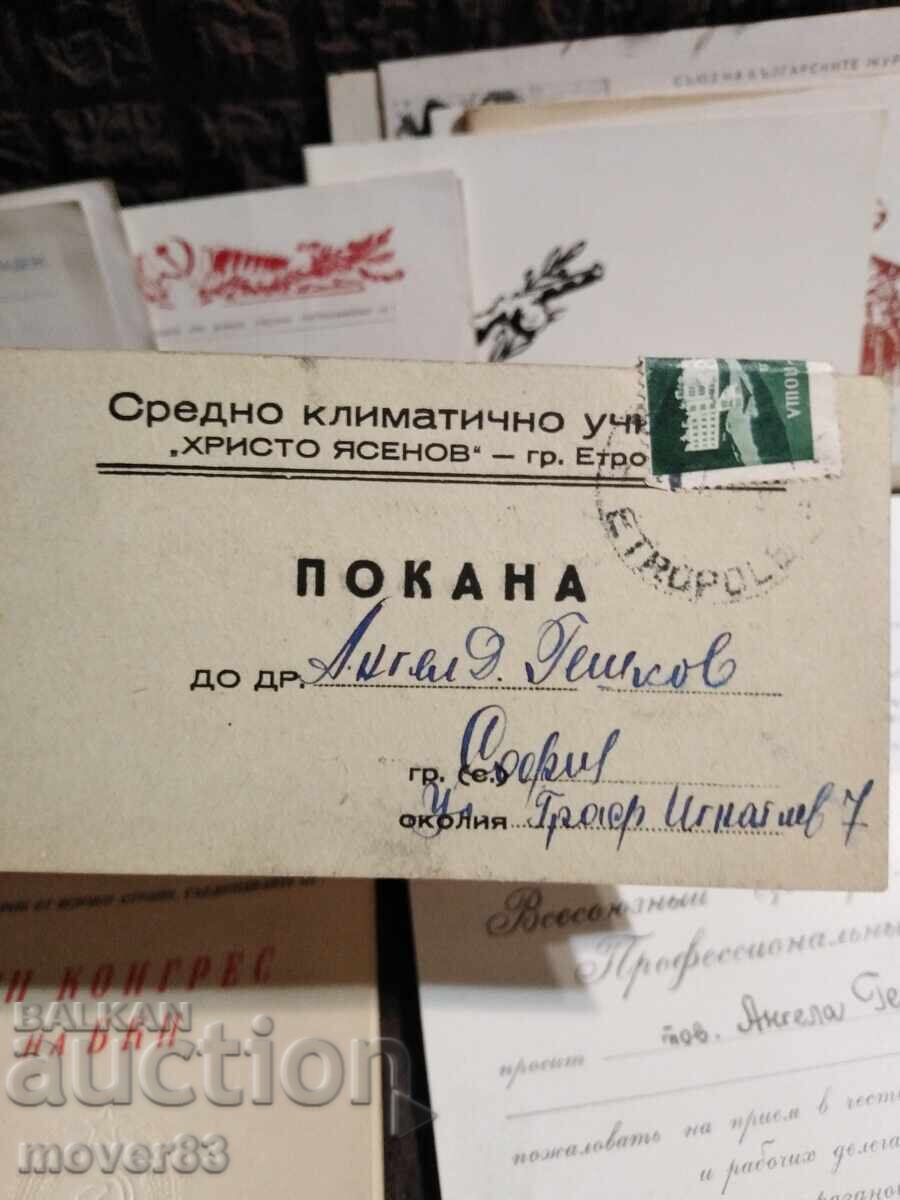 СЪЮЗ НА БЪЛГАРСКИТЕ ЖУР
Средно климатично учи
„ХРИСТО ЯСЕНОВ" — гр. Етро
ETROPOLE
ПОКАНА
ДО ДР. Ангел Д. Гешков
гр. (с.) София
околия Ул Граф Игнатиев 7
КОНГРЕС
НА БКП
Всесоюзный
Профессиональны
тов. Ангела Ге
просит
пожаловать на прием в чест
и рабочих делега
BALKAN
auction
mover83